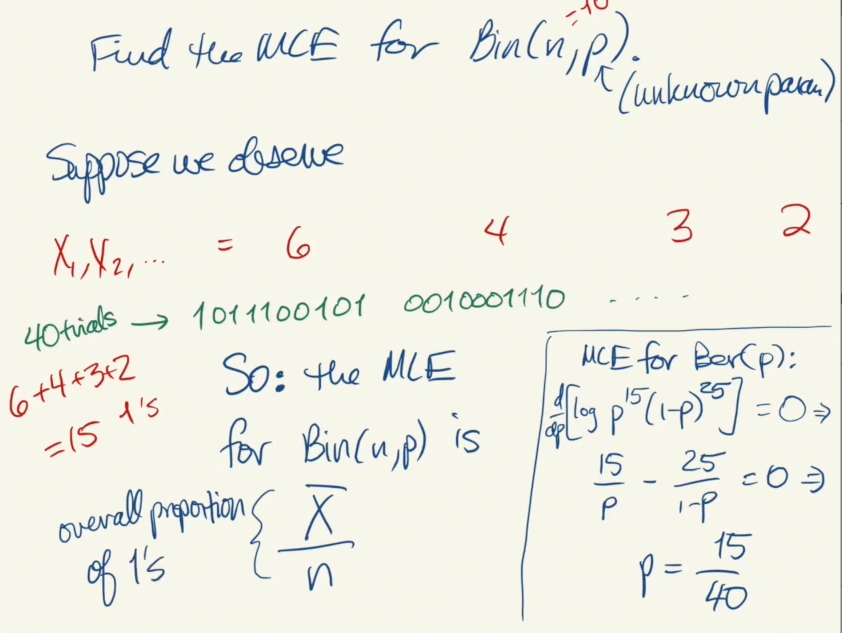 =10
Find the MLE for Bin(n,p).
(unknown param)
Suppose we observe
X₁,X₂,... = 6 4 3 2
40 trials → 1011100101 0010001110 .....
6+4+3+2
=15 1's
So: the MLE
for Bin(n,p) is
overall proportion
of 1's
{ X̄/n
MLE for Ber(p):
d/dp[log p¹⁵(1-p)²⁵] = 0 ⇒
15/p - 25/(1-p) = 0 ⇒
p = 15/40